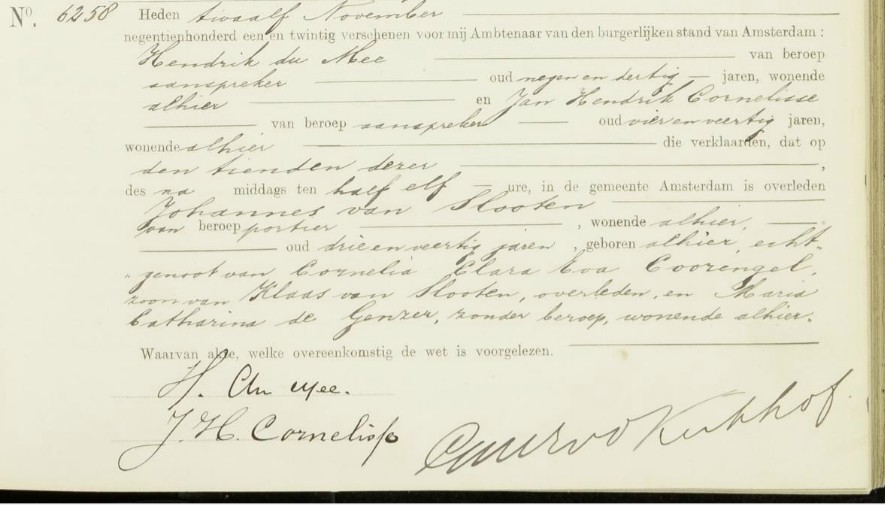 Nº. 6258 Heden twaalf November
negentienhonderd een en twintig verschenen voor mij Ambtenaar van den burgerlijken stand van Amsterdam :
Hendrik du Mee van beroep
aanspreker oud negen en dertig jaren, wonende
alhier en Jan Hendrik Cornelisse
van beroep aanspreker oud vier en veertig jaren,
wonende alhier die verklaarden, dat op
den tienden dezer ,
des na middags ten half elf ure, in de gemeente Amsterdam is overleden
Johannes van Slooten
van beroep portier , wonende alhier,
oud drie en veertig jaren , geboren alhier, echt-
genoot van Cornelia Clara Eva Coorengel,
zoon van Klaas van Slooten, overleden, en Maria
Catharina de Genzer, zonder beroep, wonende alhier.
Waarvan akte, welke overeenkomstig de wet is voorgelezen.
H. du Mee.
J. H. Cornelisse